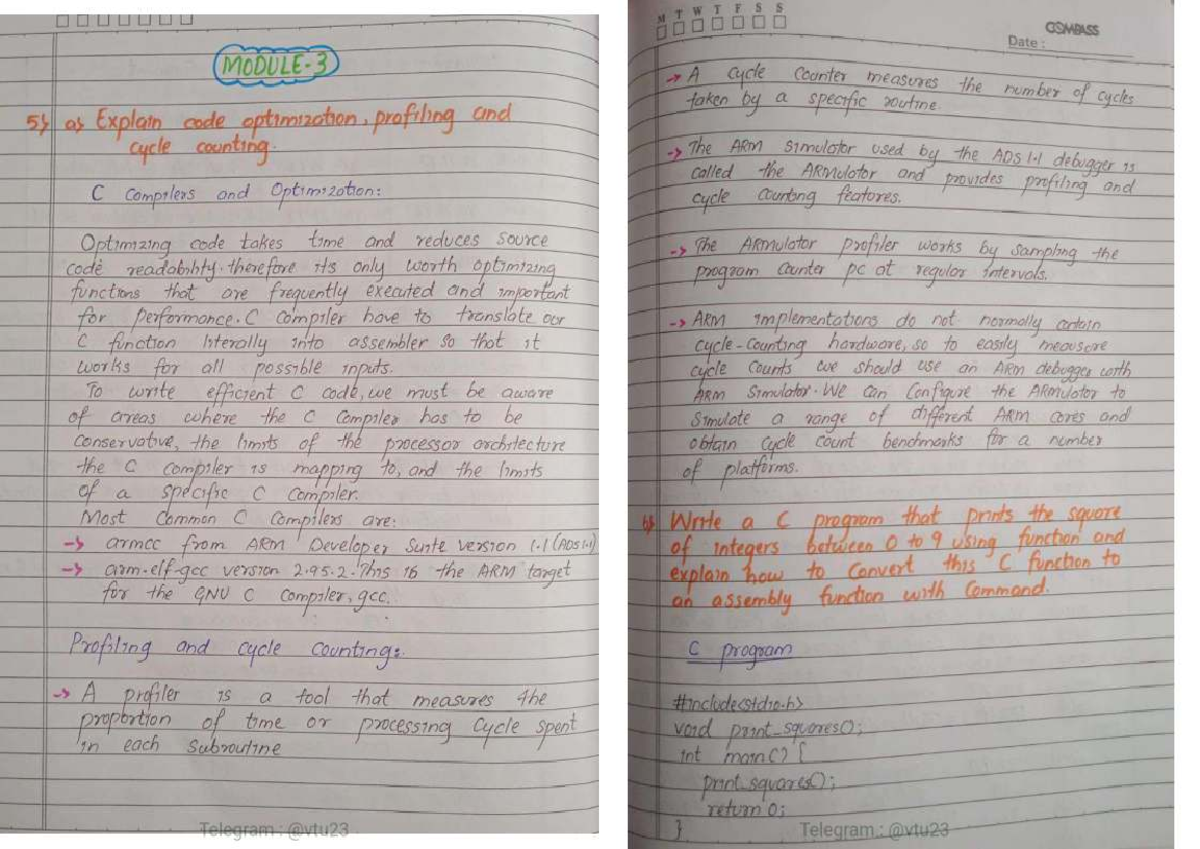 MODULE-3
5) a) Explain code optimization, profiling and
cycle counting.
C Compilers and Optimization:
Optimizing code takes time and reduces source
code readability. therefore its only worth optimizing
functions that are frequently executed and important
for performance. C Compiler have to translate our
C function literally into assembler so that it
works for all possible inputs.
To write efficient C code, we must be aware
of areas where the C Compiler has to be
Conservative, the limits of the processor architecture
the C Compiler is mapping to, and the limits
of a specific C Compiler.
Most Common C Compilers are:
-> armcc from ARM Developer Suite version 1.1 (ADS1.1)
-> arm-elf-gcc version 2.95.2. This is the ARM target
for the GNU C Compiler, gcc.
Profiling and cycle Counting:
-> A profiler is a tool that measures the
proportion of time or processing Cycle spent
in each Subroutine
Telegram : @vtu23
M T W T F S S
COMPASS
Date :
-> A Cycle Counter measures the number of cycles
taken by a specific routine.
-> The ARM simulator used by the ADS1.1 debugger is
called the ARMulator and provides profiling and
cycle counting features.
-> The ARMulator profiler works by sampling the
program counter pc at regular intervals.
-> ARM implementations do not normally contain
cycle-Counting hardware, so to easily measure
cycle Counts we should use an ARM debugger with
ARM Simulator. We can Configure the ARMulator to
Simulate a range of different ARM cores and
obtain Cycle count benchmarks for a number
of platforms.
b) Write a C program that prints the square
of integers between 0 to 9 using function and
explain how to Convert this C function to
an assembly function with Command.
C program
#include<stdio.h>
void print_squares();
int main() {
print_squares();
return 0;
}
Telegram : @vtu23